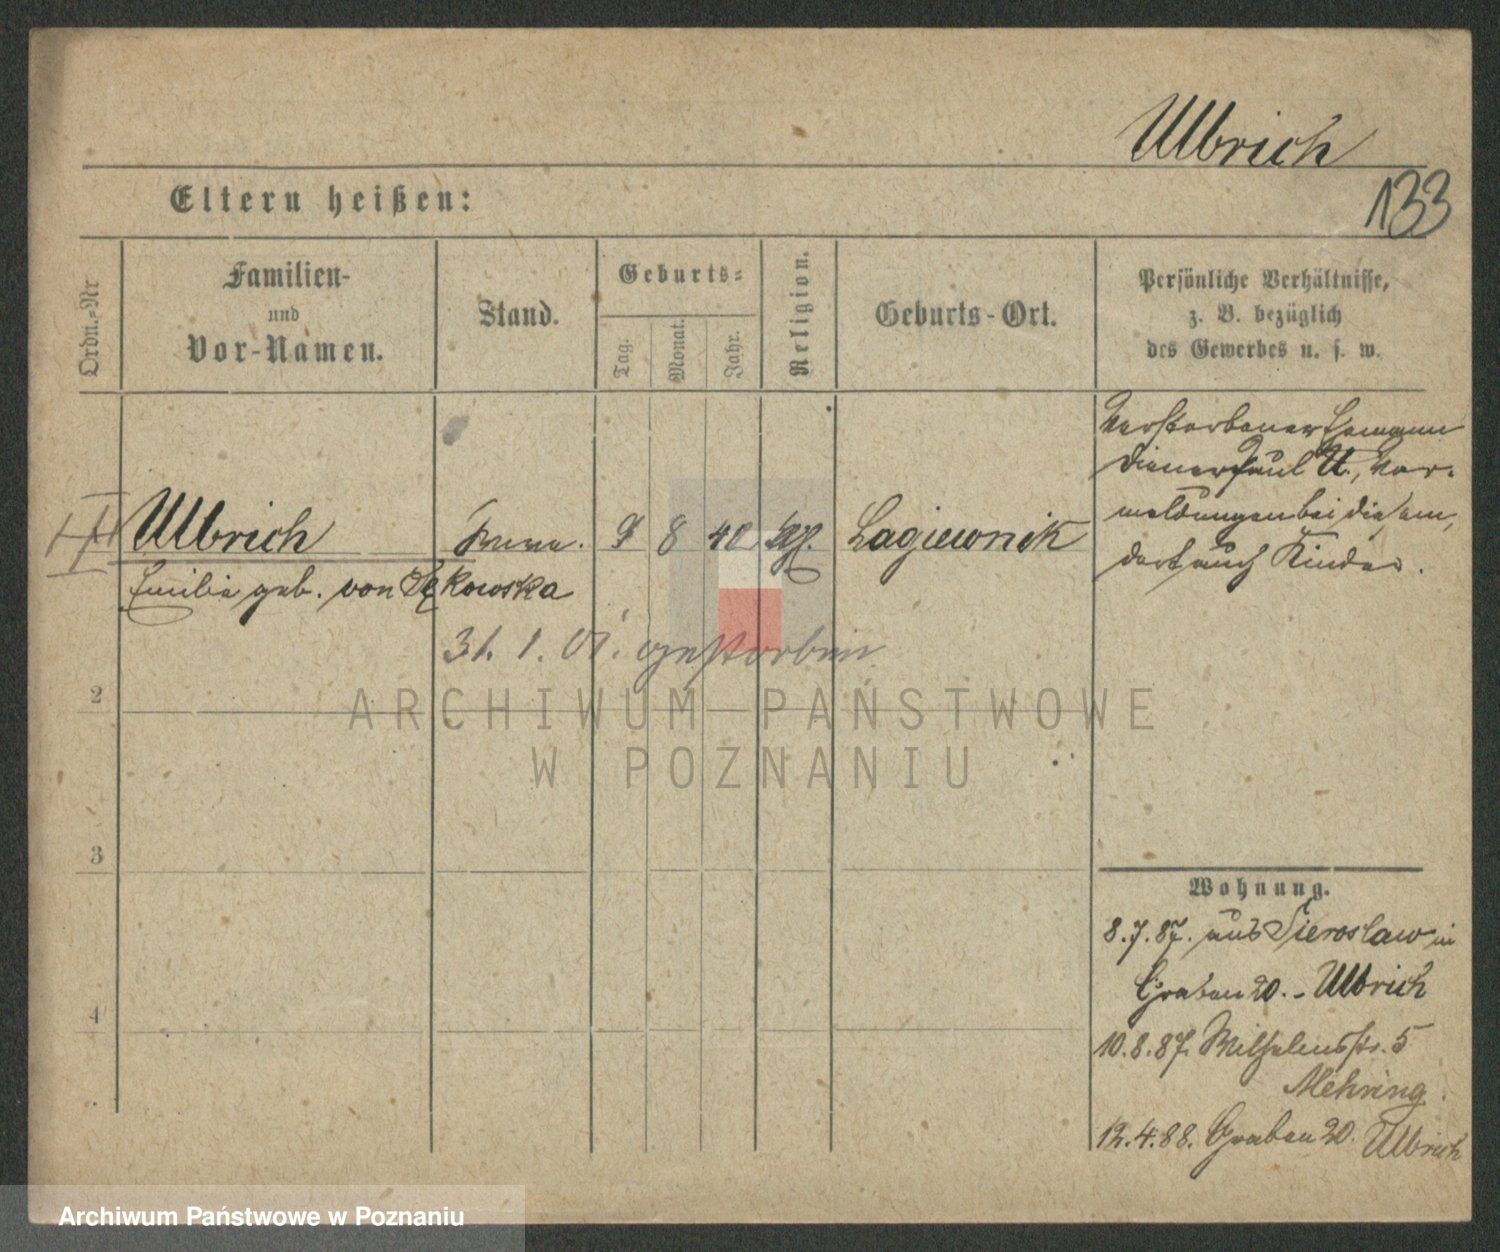 Ulbrich
133
Eltern heißen:
Ordn.-Nr
Familien-
und
Vor-Namen.
Stand.
Geburts-
Tag.
Monat.
Jahr.
Religion.
Geburts-Ort.
Persönliche Verhältnisse,
z. B. bezüglich
des Gewerbes u. s. w.
Verstorbener Ehemann
Diener Paul U., Ver-
meldungen bei diesem,
dort auch Kinder.
Ulbrich
Wwe. 9 8 40
Lagiewnik
Emilie geb. von
31. 1. 01. gestorben
2
ARCHIWUM PAŃSTWOWE
W POZNANIU
3
4
Wohnung.
8.7.87. aus Sieroslaw in
Graben 20. - Ulbrich
10.8.87. Wilhelmstr. 5
Mehring.
12.4.88. Graben 20. Ulbrich
Archiwum Państwowe w Poznaniu